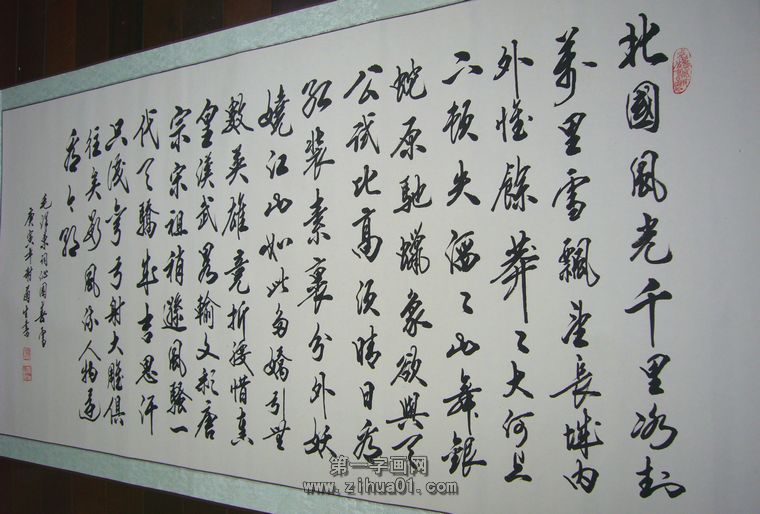 北國風光千里冰封
萬里雪飄望長城内
外惟餘莽〻大河上
下頓失滔〻山舞銀
蛇原馳蠟象欲與天
公試比高須晴日看
紅裝素裹分外妖
嬈江山如此多嬌引無
數英雄竟折腰惜秦
皇漢武略輸文彩唐
宗宋祖稍遜風騷一
代天驕成吉思汗
只識彎弓射大雕俱
往矣數風流人物還
看今朝
毛澤東詞沁園春雪
庚寅年封酉生書
第一字画网
www.zihua01.com